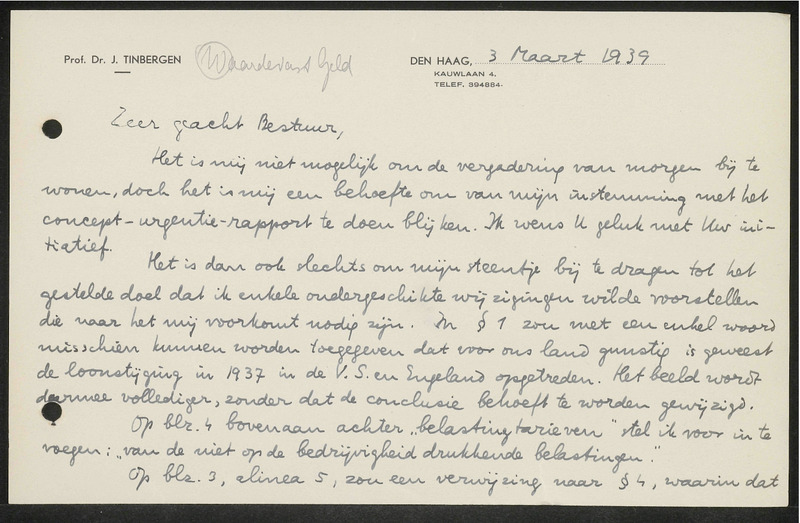 Prof. Dr. J. TINBERGEN
Waardevast Geld
DEN HAAG, 3 Maart 1939
KAUWLAAN 4.
TELEF. 394884.
Zeer geacht Bestuur,
Het is mij niet mogelijk om de vergadering van morgen bij te
wonen, doch het is mij een behoefte om van mijn instemming met het
concept-urgentie-rapport te doen blijken. Ik wens U geluk met Uw ini-
tiatief.
Het is dan ook slechts om mijn steentje bij te dragen tot het
gestelde doel dat ik enkele ondergeschikte wijzigingen wilde voorstellen
die naar het mij voorkomt nodig zijn. In § 1 zou met een enkel woord
misschien kunnen worden toegegeven dat voor ons land gunstig is geweest
de loonstijging in 1937 in de V.S. en Engeland opgetreden. Het beeld wordt
daarmee vollediger, zonder dat de conclusie behoeft te worden gewijzigd.
Op blz. 4 bovenaan achter "belastingtarieven" stel ik voor in te
voegen: "van de niet op de bedrijvigheid drukkende belastingen."
Op blz. 3, alinea 5, zou een verwijzing naar § 4, waarin dat